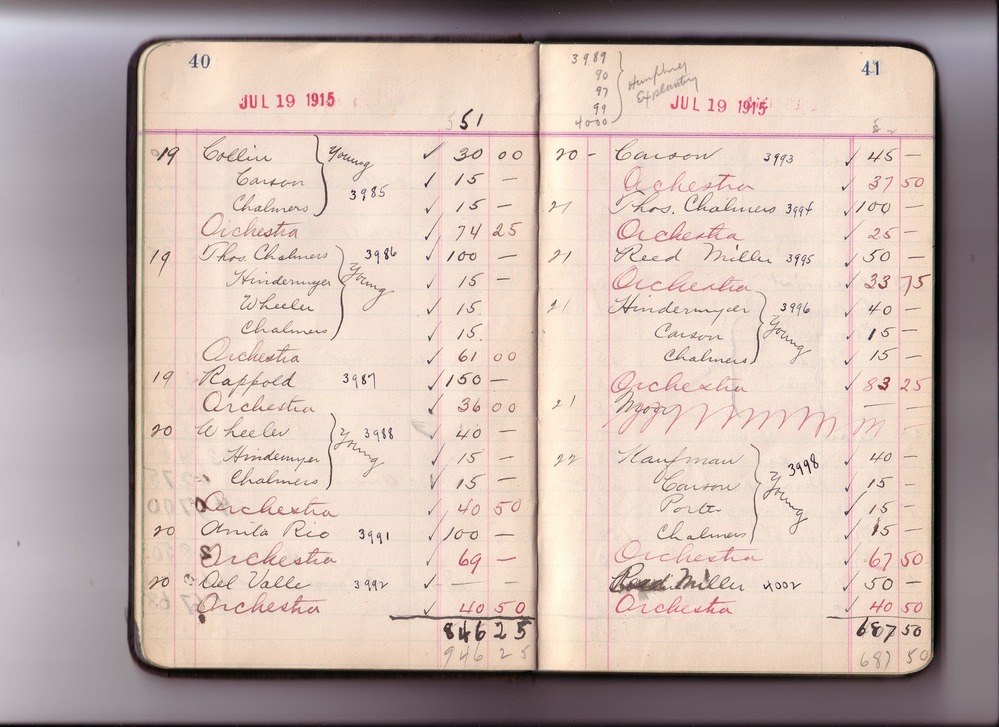 40
JUL 19 1915
51
19 Collin } Young ✓ 30 00
Carson ✓ 15 —
3985
Chalmers ✓ 15 —
Orchestra ✓ 74 25
19 Thos. Chalmers } 3986 ✓ 100 —
Hindermyer Young ✓ 15 —
Wheeler ✓ 15
Chalmers ✓ 15
Orchestra ✓ 61 00
19 Rappold 3987 ✓ 150 —
Orchestra ✓ 36 00
20 Wheeler } Young 3988 ✓ 40 —
Hindermyer ✓ 15 —
Chalmers ✓ 15 —
Orchestra ✓ 40 50
20 Anita Rio 3991 ✓ 100 —
Orchestra ✓ 69 —
20 Del Valle 3992 ✓ — —
Orchestra ✓ 40 50
846 25
946 25
41
3989
90
97
99
4000
} Humphrey
JUL 19 1915
20 - Carson 3993 ✓ 45 —
Orchestra ✓ 37 50
21 Thos. Chalmers 3994 ✓ 100 —
Orchestra ✓ 25 —
21 Reed Miller 3995 ✓ 50 —
Orchestra ✓ 33 75
21 Hindermyer } 3996 ✓ 40 —
Carson Young ✓ 15 —
Chalmers ✓ 15 —
Orchestra ✓ 83 25
21 — —
22 Kaufman } 3998 ✓ 40 —
Carson Young ✓ 15 —
Porter ✓ 15 —
Chalmers ✓ 15 —
Orchestra ✓ 67 50
Reed Miller 4002 ✓ 50 —
Orchestra ✓ 40 50
687 50
687 50